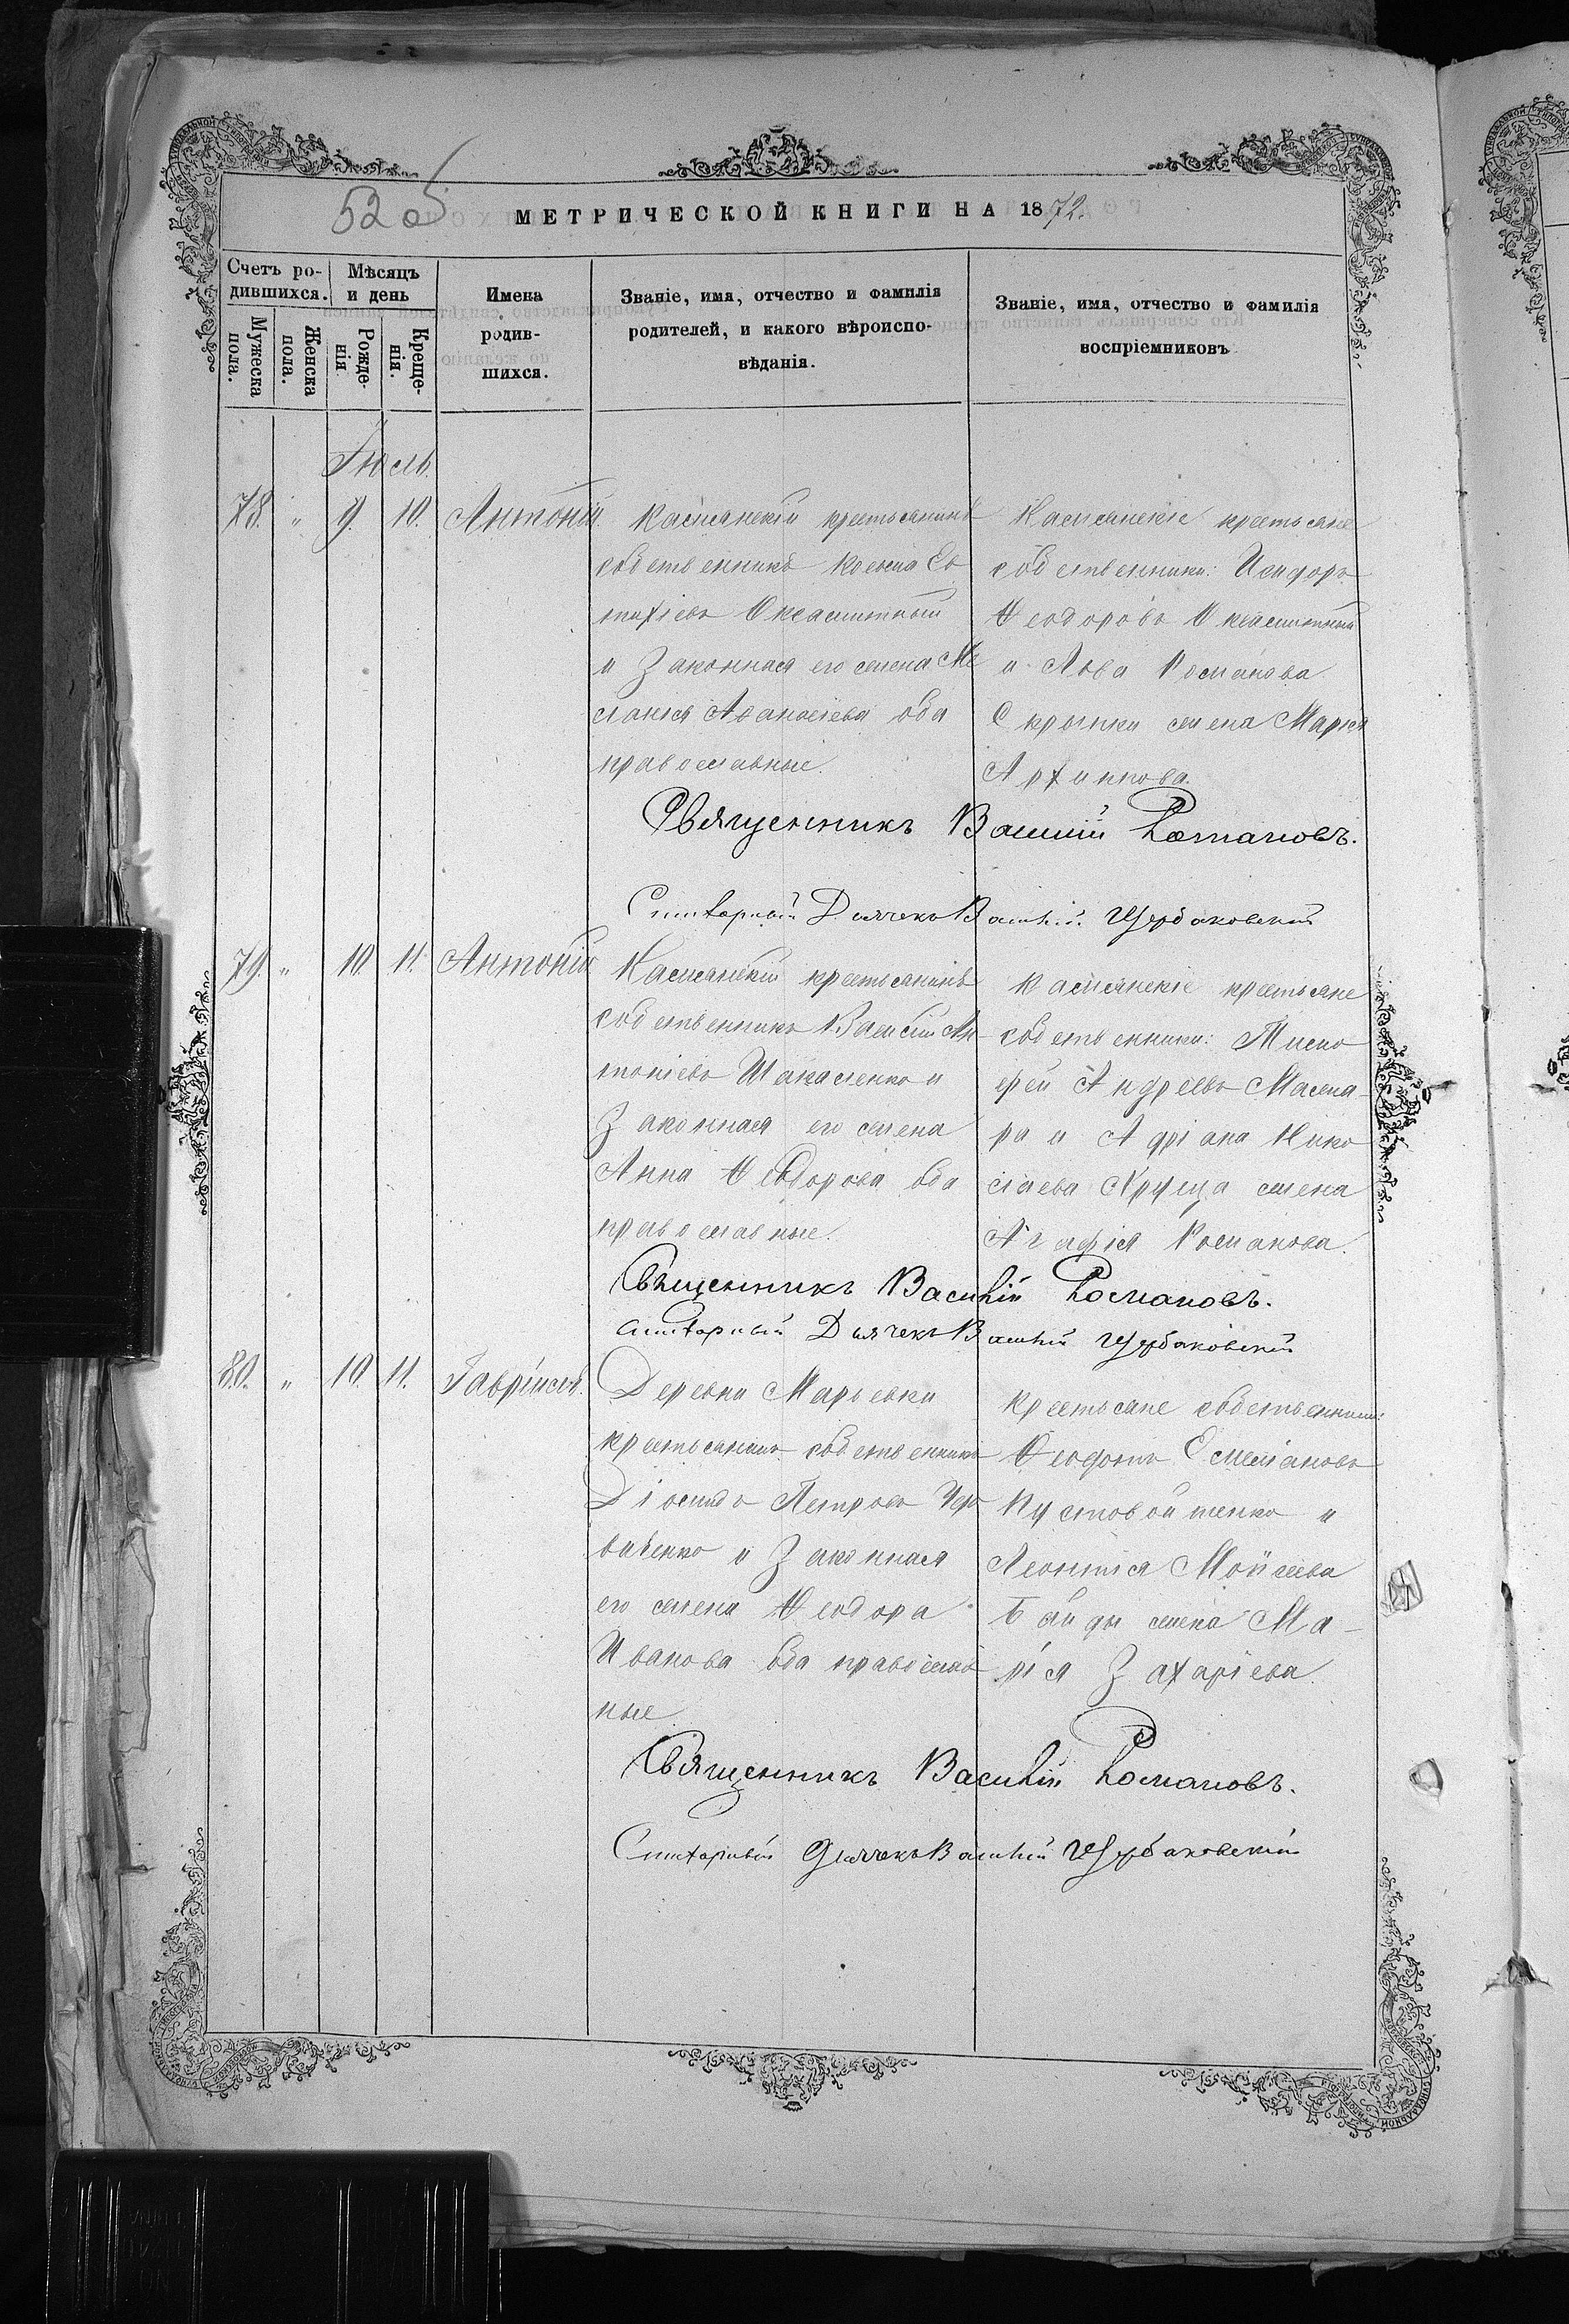 52 об
МЕТРИЧЕСКОЙ КНИГИ НА 1872.
Счетъ ро-
дившихся.
Мѣсяцъ
и день
Мужеска
пола.
Женска
пола.
Рожде-
нія
Креще-
нія.
Имена
родив-
шихся.
Званіе, имя, отчество и фамилія
родителей, и какого вѣроиспо-
вѣданія.
Званіе, имя, отчество и фамилія
воспріемниковъ
Іюль.
78. " 9. 10. Антоній
Касьянскій крестьянинъ
собственникъ Косьма Ев
тихіевъ
и законная его жена Ме
ланія Аѳанасіева оба
православные.
Касьянскіе крестьяне
собственники: Исидоръ
Ѳеодоровъ
и Льва Романова
Скрыпки жена Марія
Архиппова.
Священникъ Василій Романовъ.
Дьячекъ Василій Щербаковскій
79. " 10. 11. Антоній
Касьянскій крестьянинъ
собственникъ Василій Ан
тоніевъ Шакаленко и
законная его жена
Анна Ѳеодорова оба
православные.
Касьянскіе крестьяне
собственники:
Андреевъ
ра и Адріана Нико
лаева Хруща жена
Агафія Романова.
Священникъ Василій Романовъ.
Дьячекъ Василій Щербаковскій
80. " 10. 11. Гавріилъ.
Деревни Марьевки
крестьянинъ собственникъ
Діомидъ Петровъ
и законная
его жена Ѳеодора
Иванова оба православ
ные
Крестьяне собственники:
Ѳеофанъ Емеліановъ
Пустовойтенко и
Леонтія Моисеева
Байды жена Ма-
рія Захаріева.
Священникъ Василій Романовъ.
Дьячекъ Василій Щербаковскій